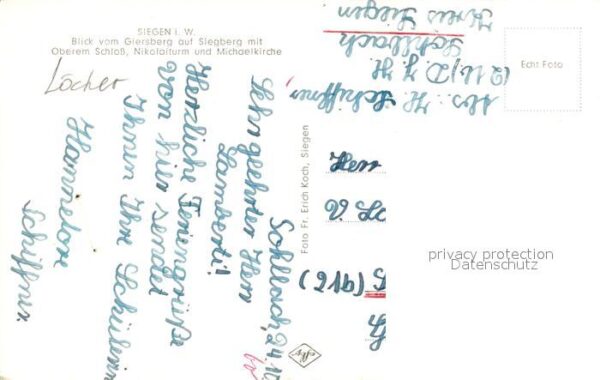 SIEGEN i. W.
Blick vom Giersberg auf Siegberg mit
Oberem Schloß, Nikolaiturm und Michaelkirche
Löcher
Sohlbach, 24.10.
Sehr geehrter Herr
Lamberti!
Herzliche Feriengrüße
von hier sendet
Ihnen Ihre Schülerin
Hannelore
Schiffner.
Foto Fr. Erich Koch, Siegen
Echt Foto
Abs.: H. Schiffner
Sohlbach
Kreis Siegen
Herr
privacy protection
Datenschutz